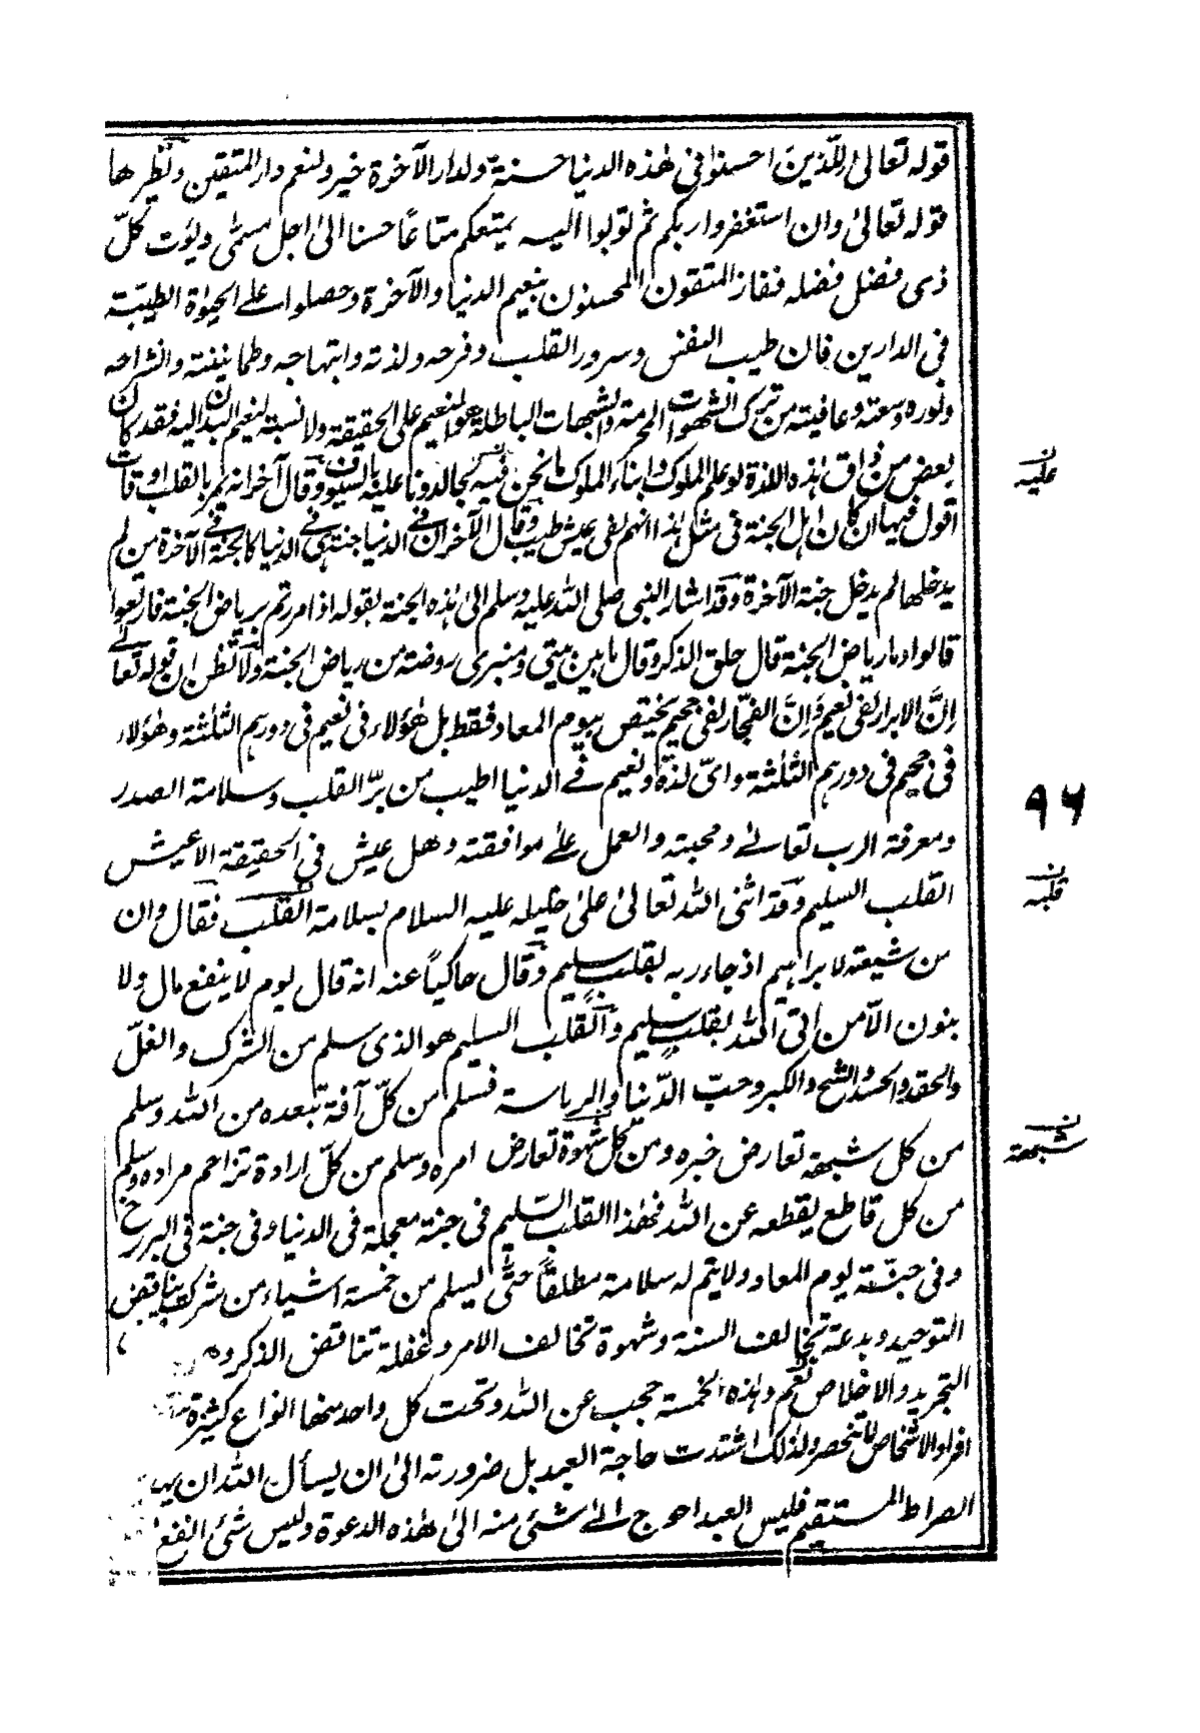 قوله تعالى للذين احسنوا فى هذه الدنيا حسنة ولدار الآخرة خير ولنعم دار المتقين ونظيرها
قوله تعالى وان استغفروا ربكم ثم توبوا اليه يمتعكم متاعًا حسنا الى اجل مسمى ويؤت كلّ
ذى فضل فضله ففاز المتقون المحسنون بنعيم الدنيا والآخرة وحصلوا على الحيوة الطيبّة
فى الدارين فان طيب النفس وسرور القلب وفرحه ولذته وابتهاجه وطمانينته وانشراحه
ونوره وسعته وعافيته من ترك الشهوات المحرمة والشبهات الباطلة هو النعيم على الحقيقة ولا نسبة لنعيم البدن اليه فقد كان
بعض من ذاق هذه اللذة لو علم الملوك وابناء الملوك ما نحن فيه لجالدونا عليه بالسيوف وقال آخر انه ليمر بالقلب اوقات
اقول فيها ان كان اهل الجنة فى مثل هذا انهم لفى عيش طيب وقال الآخر ان فى الدنيا جنة هى فى الدنيا كالجنة فى الآخرة من لم
يدخلها لم يدخل جنة الآخرة وقد اشار النبى صلى الله عليه وسلم الى هذه الجنة بقوله اذا مررتم برياض الجنة فارتعوا
قالوا وما رياض الجنة قال حلق الذكر وقال ما بين بيتى ومنبرى روضة من رياض الجنة ولا تظن ان قوله تعالى
اِنَّ الابرار لفى نعيم وَاِنَّ الفجّار لفى جحيم يختص بيوم المعاد فقط بل هؤلاء فى نعيم فى دورهم الثلثة وهؤلاء
فى جحيم فى دورهم الثلثة واىّ لذة ونعيم فى الدنيا اطيب من برّ القلب وسلامة الصدر
ومعرفة الرب تعالى ومحبته والعمل على موافقته وهل عيش فى الحقيقة الا عيش
القلب السليم وقد اثنى الله تعالى على خليله عليه السلام بسلامة القلب فقال وان
من شيعته لابراهيم اذ جاء ربه بقلب سليم وقال حاكياً عنه انه قال يوم لا ينفع مال ولا
بنون الّا من اتى الله بقلب سليم والقلب السليم هو الذى سلم من الشرك والغلّ
والحقد والحسد والشح والكبر وحبّ الدّنيا والرياسة فسلم من كلّ آفة تبعده من الله وسلم
من كل شبهة تعارض خبره ومن كل شهوة تعارض امره وسلم من كلّ ارادة تزاحم مراده وسلم
من كل قاطع يقطعه عن الله فهذا القلب السّليم فى جنة معجلة فى الدنيا وفى جنة فى البرزخ
وفى جنّة يوم المعاد ولا يتم له سلامة مطلقاً حتّى يسلم من خمسة اشياء من شرك يناقض
التوحيد وبدعة تخالف السنة وشهوة تخالف الامر وغفلة تناقض الذكر
التجريد والاخلاص وهذه الخمسة حجب عن الله وتحت كل واحد منها انواع كثيرة
افراد الاشخاص لا تنحصر ولذلك اشتدت حاجة العبد بل ضرورته الى ان يسأل الله ان
الصراط المستقيم فليس العبد احوج الى شئى منه الى هذه الدعوة وليس شئى انفع
ن
عليه
٩٤
ن
قلبه
ن
شبهة